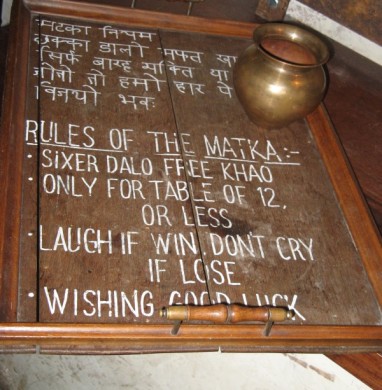 मटका
छक्का डालो मुफ्त खा
सिर्फ बारह व्यक्ति या
जीतो तो हसो हार पे
विजयी भवः
RULES OF THE MATKA:-
• SIXER DALO FREE KHAO
• ONLY FOR TABLE OF 12,
OR LESS
• LAUGH IF WIN, DON'T CRY
IF LOSE
• WISHING GOOD LUCK